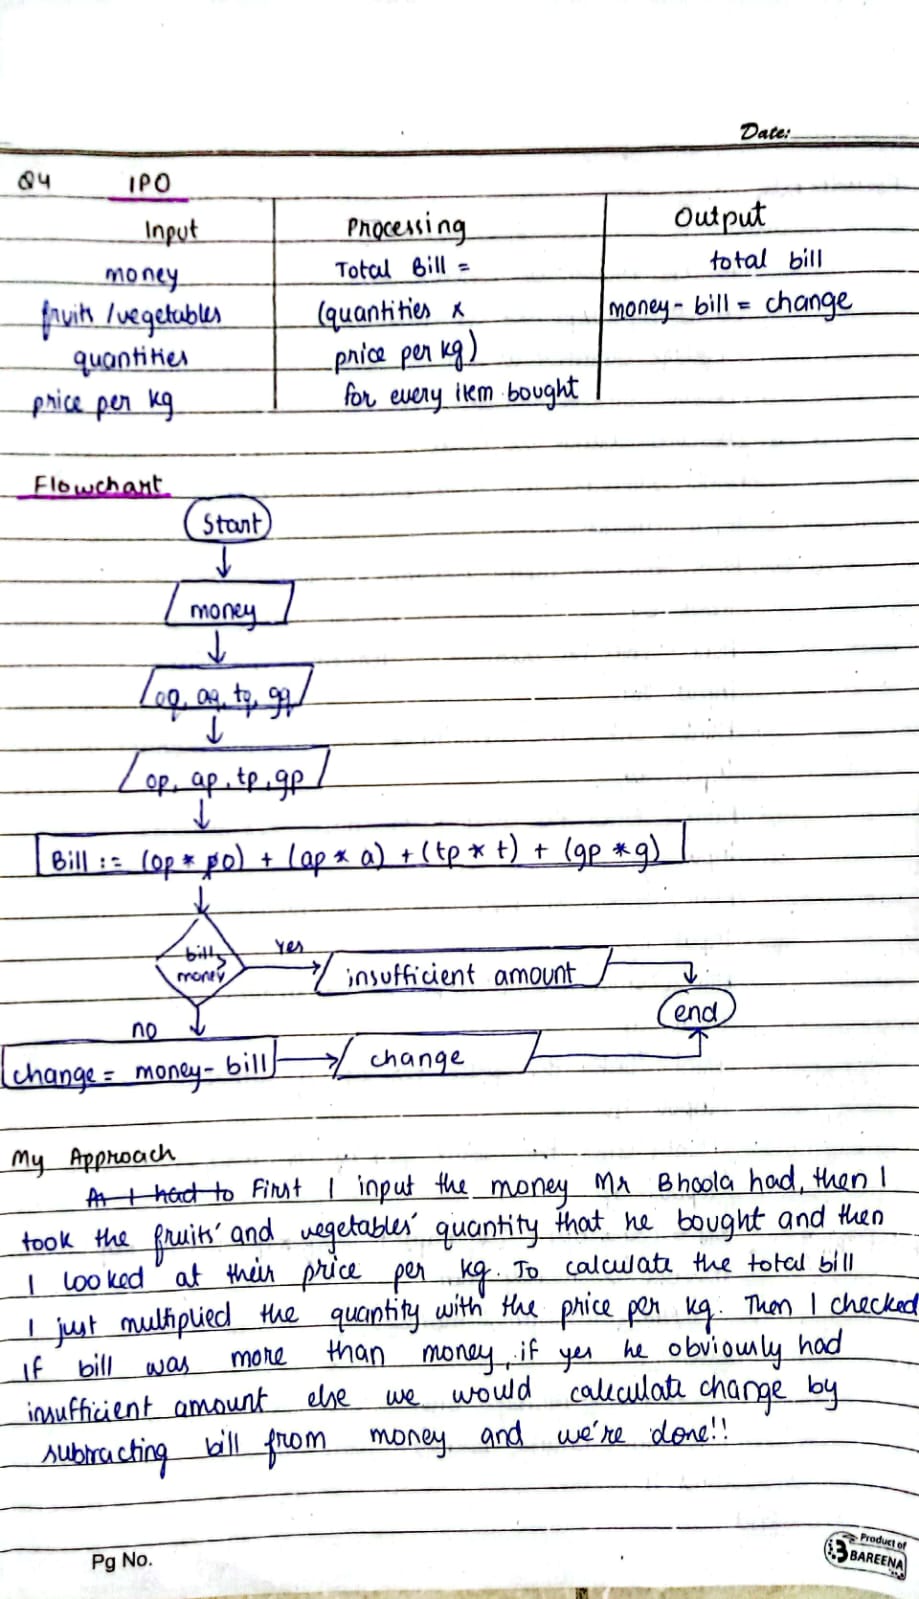 Date:
Q4 IPO
Input Processing Output
money Total Bill = total bill
fruits /vegetables (quantities x money - bill = change
quantities price per kg)
price per kg for every item bought
Flowchart
Start
money
oq, aq, tq, gq
op, ap, tp, gp
Bill := (op * o) + (ap * a) + (tp * t) + (gp * g)
bill > money
Yes
insufficient amount
end
no
change = money - bill
change
My Approach
As I had to First I input the money Mr Bhoola had, then I
took the fruits' and vegetables' quantity that he bought and then
I looked at their price per kg. To calculate the total bill
I just multiplied the quantity with the price per kg. Then I checked
if bill was more than money, if yes he obviously had
insufficient amount else we would calculate change by
subtracting bill from money and we're done!!
Pg No.
Product of
BAREENA